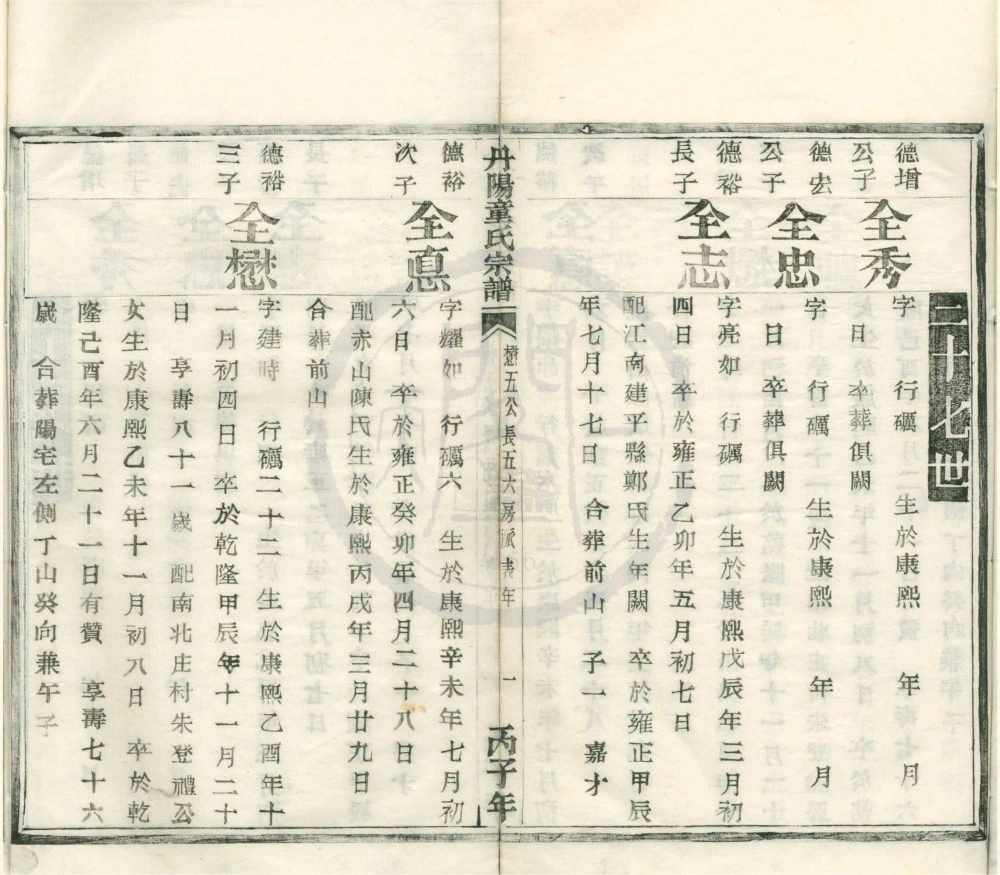 二十七世
德增
公子
全秀
字　行礪　生於康熙　年　月
日　卒葬俱闕
德宏
公子
全忠
字　行礪　生於康熙　年　月
日　卒葬俱闕
德裕
長子
全志
字亮如　行礪三　生於康熙戊辰年三月初
四日　卒於雍正乙卯年五月初七日
配江南建平縣鄭氏生年闕　卒於雍正甲辰
年七月十七日　合葬前山　子一　嘉才
丹陽童氏宗譜　懋五公長五六房　一　丙子年
德裕
次子
全悳
字耀如　行礪六　生於康熙辛未年七月初
六日　卒於雍正癸卯年四月二十八日
配赤山陳氏生於康熙丙戌年三月廿九日
合葬前山
德裕
三子
全懋
字建時　行礪二十二生於康熙乙酉年十
一月初四日　卒於乾隆甲辰年十一月二十
日　享壽八十一歲　配南北庄村朱登禮公
女生於康熙乙未年十一月初八日　卒於乾
隆己酉年六月二十一日有贊　享壽七十六
歲　合葬陽宅左側丁山癸向兼午子